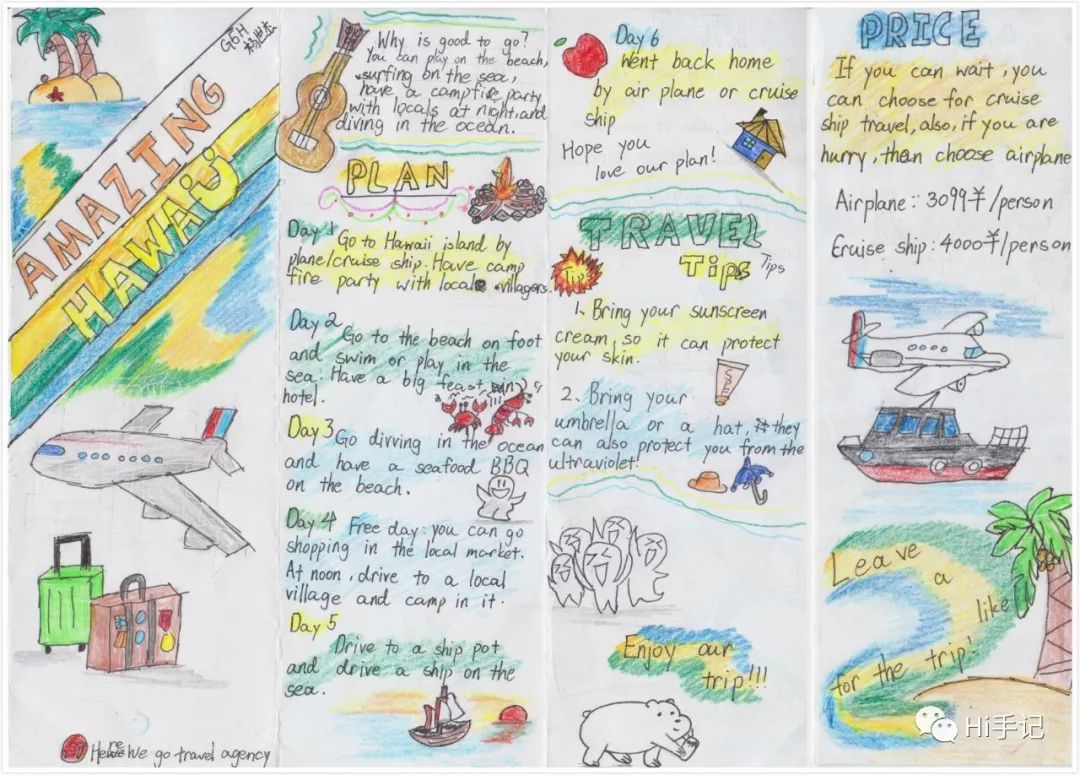 G6H
AMAZING
HAWAii
Here We go travel agency
Why is good to go?
You can play on the beach,
surfing on the sea,
have a campfire party
with locals at night, and
diving in the ocean.
PLAN
Day 1 Go to Hawaii island by
plane/cruise ship. Have camp
fire party with local villagers.
Day 2 Go to the beach on foot
and swim or play in the
sea. Have a big feast in
hotel.
Day 3 Go divving in the ocean
and have a seafood BBQ
on the beach.
Day 4 Free day: you can go
shopping in the local market.
At noon, drive to a local
village and camp in it.
Day 5
Drive to a ship pot
and drive a ship on the
sea.
Day 6
Went back home
by air plane or cruise
ship
Hope you
love our plan!
TRAVEL
Tips Tips
Tip
1、Bring your sunscreen
cream, so it can protect
your skin.
2、Bring your
umbrella or a hat, they
can also protect you from the
ultraviolet.
Enjoy our
trip!!!
PRICE
If you can wait, you
can choose for cruise
ship travel, also, if you are
hurry, then choose airplane
Airplane: 3099¥/person
Cruise ship: 4000¥/person
Leave
a
like
for the trip!
Hi手记